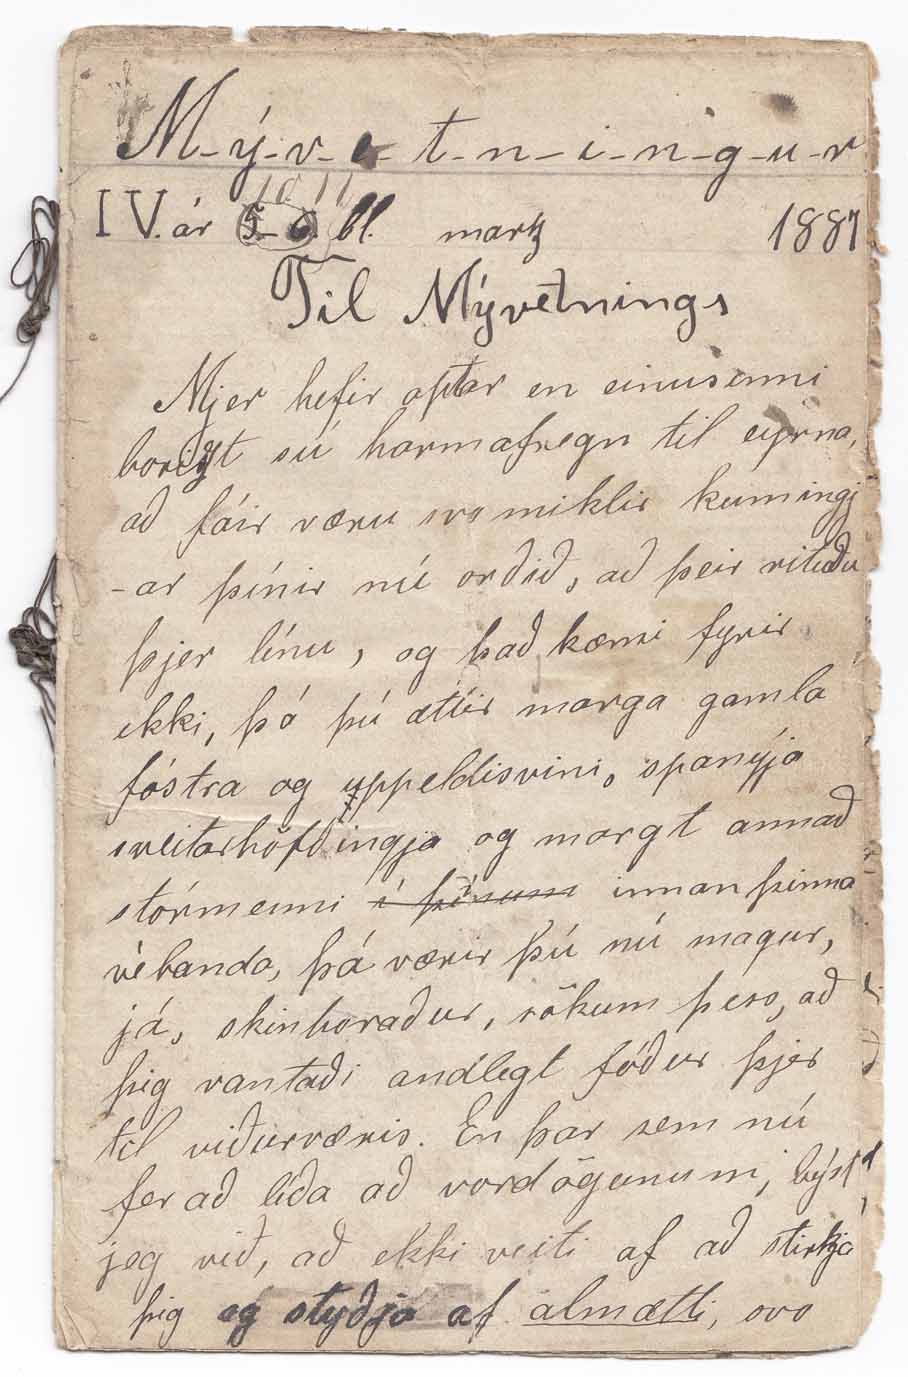 M-ý-v-e-t-n-i-n-g-u-r
10 11
IV. ár 5-6. bl. martz 1887
Til Mývetnings
Mjer hefir optar en einusinni
borizt sú harmafregn til eyrna,
að fáir væru svo miklir kunningj
-ar þínir nú orðið, að þeir rituðu
þjer línu, og það kæmi fyrir
ekki, þó þú ættir marga gamla
fóstra og uppeldisvini, spanýja
sveitarhöfðingja og margt annað
stórmenni í þínum innan þinna
vébanda, þá værir þú nú magur,
já, skinhoraður, sökum þess, að
þig vantaði andlegt fóður þjer
til viðurværis. En þar sem nú
fer að líða að vordögunum, býst
jeg við, að ekki veiti af að stirkja
þig og styðja af almætti, svo